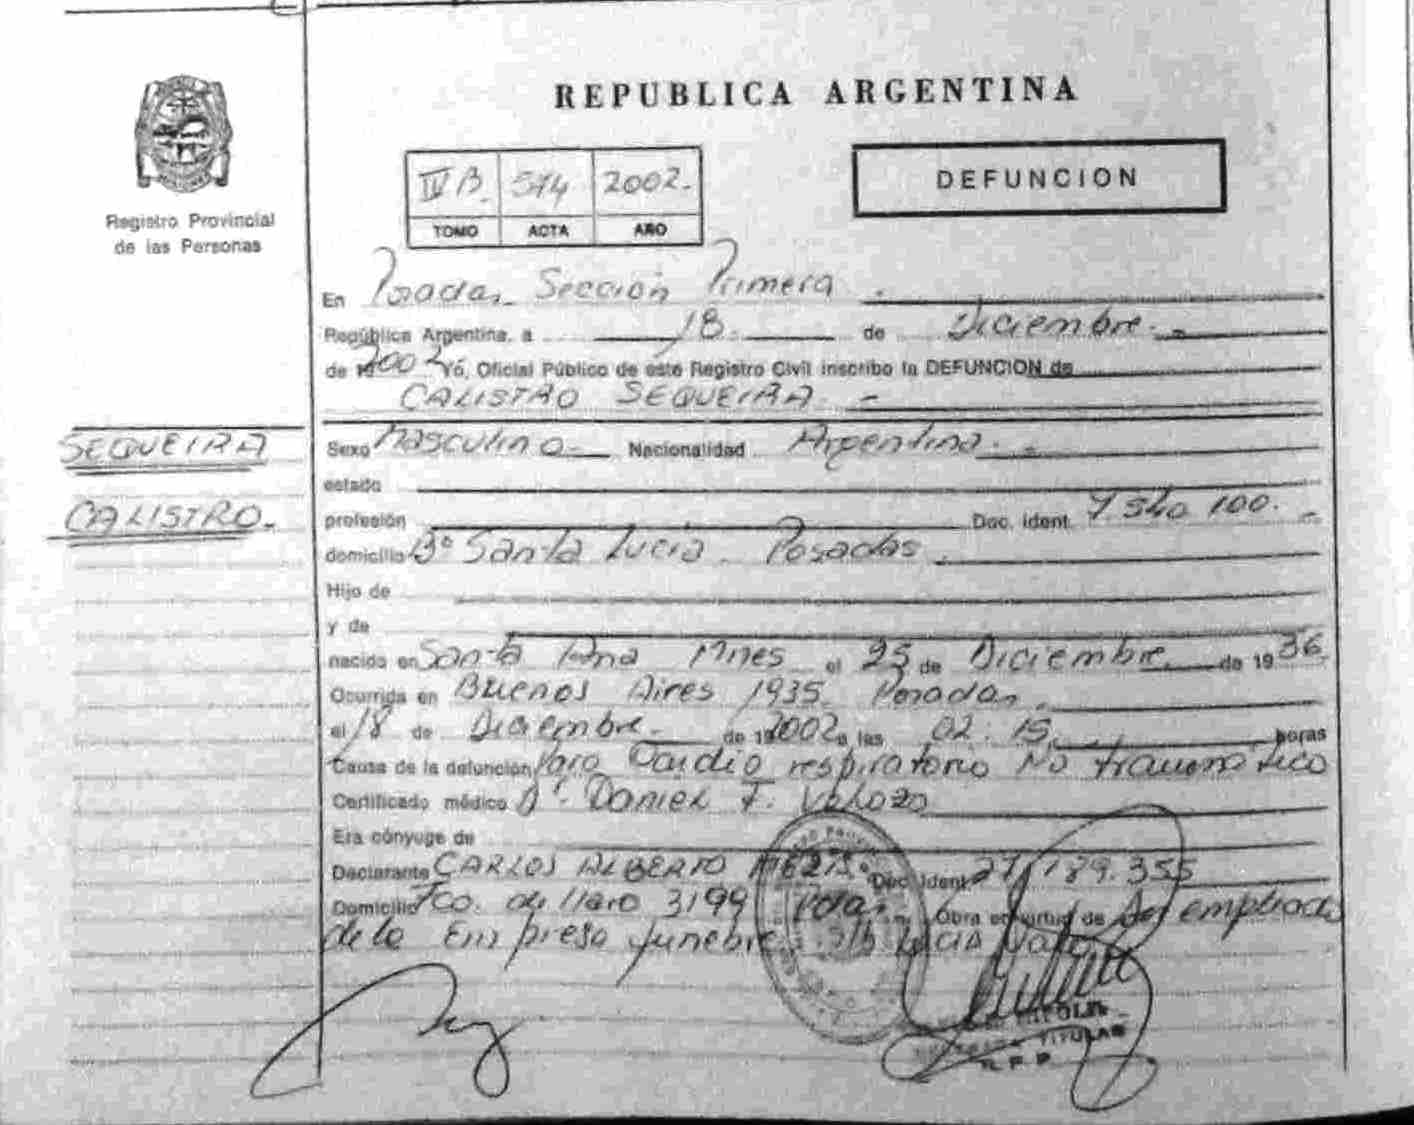 REPUBLICA ARGENTINA
DEFUNCION
IV B. 574 2002.
TOMO ACTA AÑO
Registro Provincial
de las Personas
En Posadas Sección Primera
República Argentina, a 18 de Diciembre
de 2002 Yó, Oficial Público de este Registro Civil inscribo la DEFUNCION de
CALISTRO SEQUEIRA
SEQUEIRA
CALISTRO.
Sexo Masculino Nacionalidad Argentina
estado
profesión Doc. ident. 7 540 100.
domicilio Bº Santa Lucia Posadas
Hijo de
y de
nacido en Santa Ana Mnes el 25 de Diciembre de 1936
Ocurrida en Buenos Aires 1935 Posadas
el 18 de Diciembre de 2002 a las 02:15 horas
Causa de la defunción Paro Cardio respiratorio No traumatico
Certificado médico Dr. Daniel F. Velozo
Era cónyuge de
Declarante CARLOS ALBERTO Doc. Ident. 27.189.355
Domicilio Fco. de Haro 3199 Posadas Obra en virtud de Ser empleado
de la Empresa funebre
TITULAR
R.P.P.